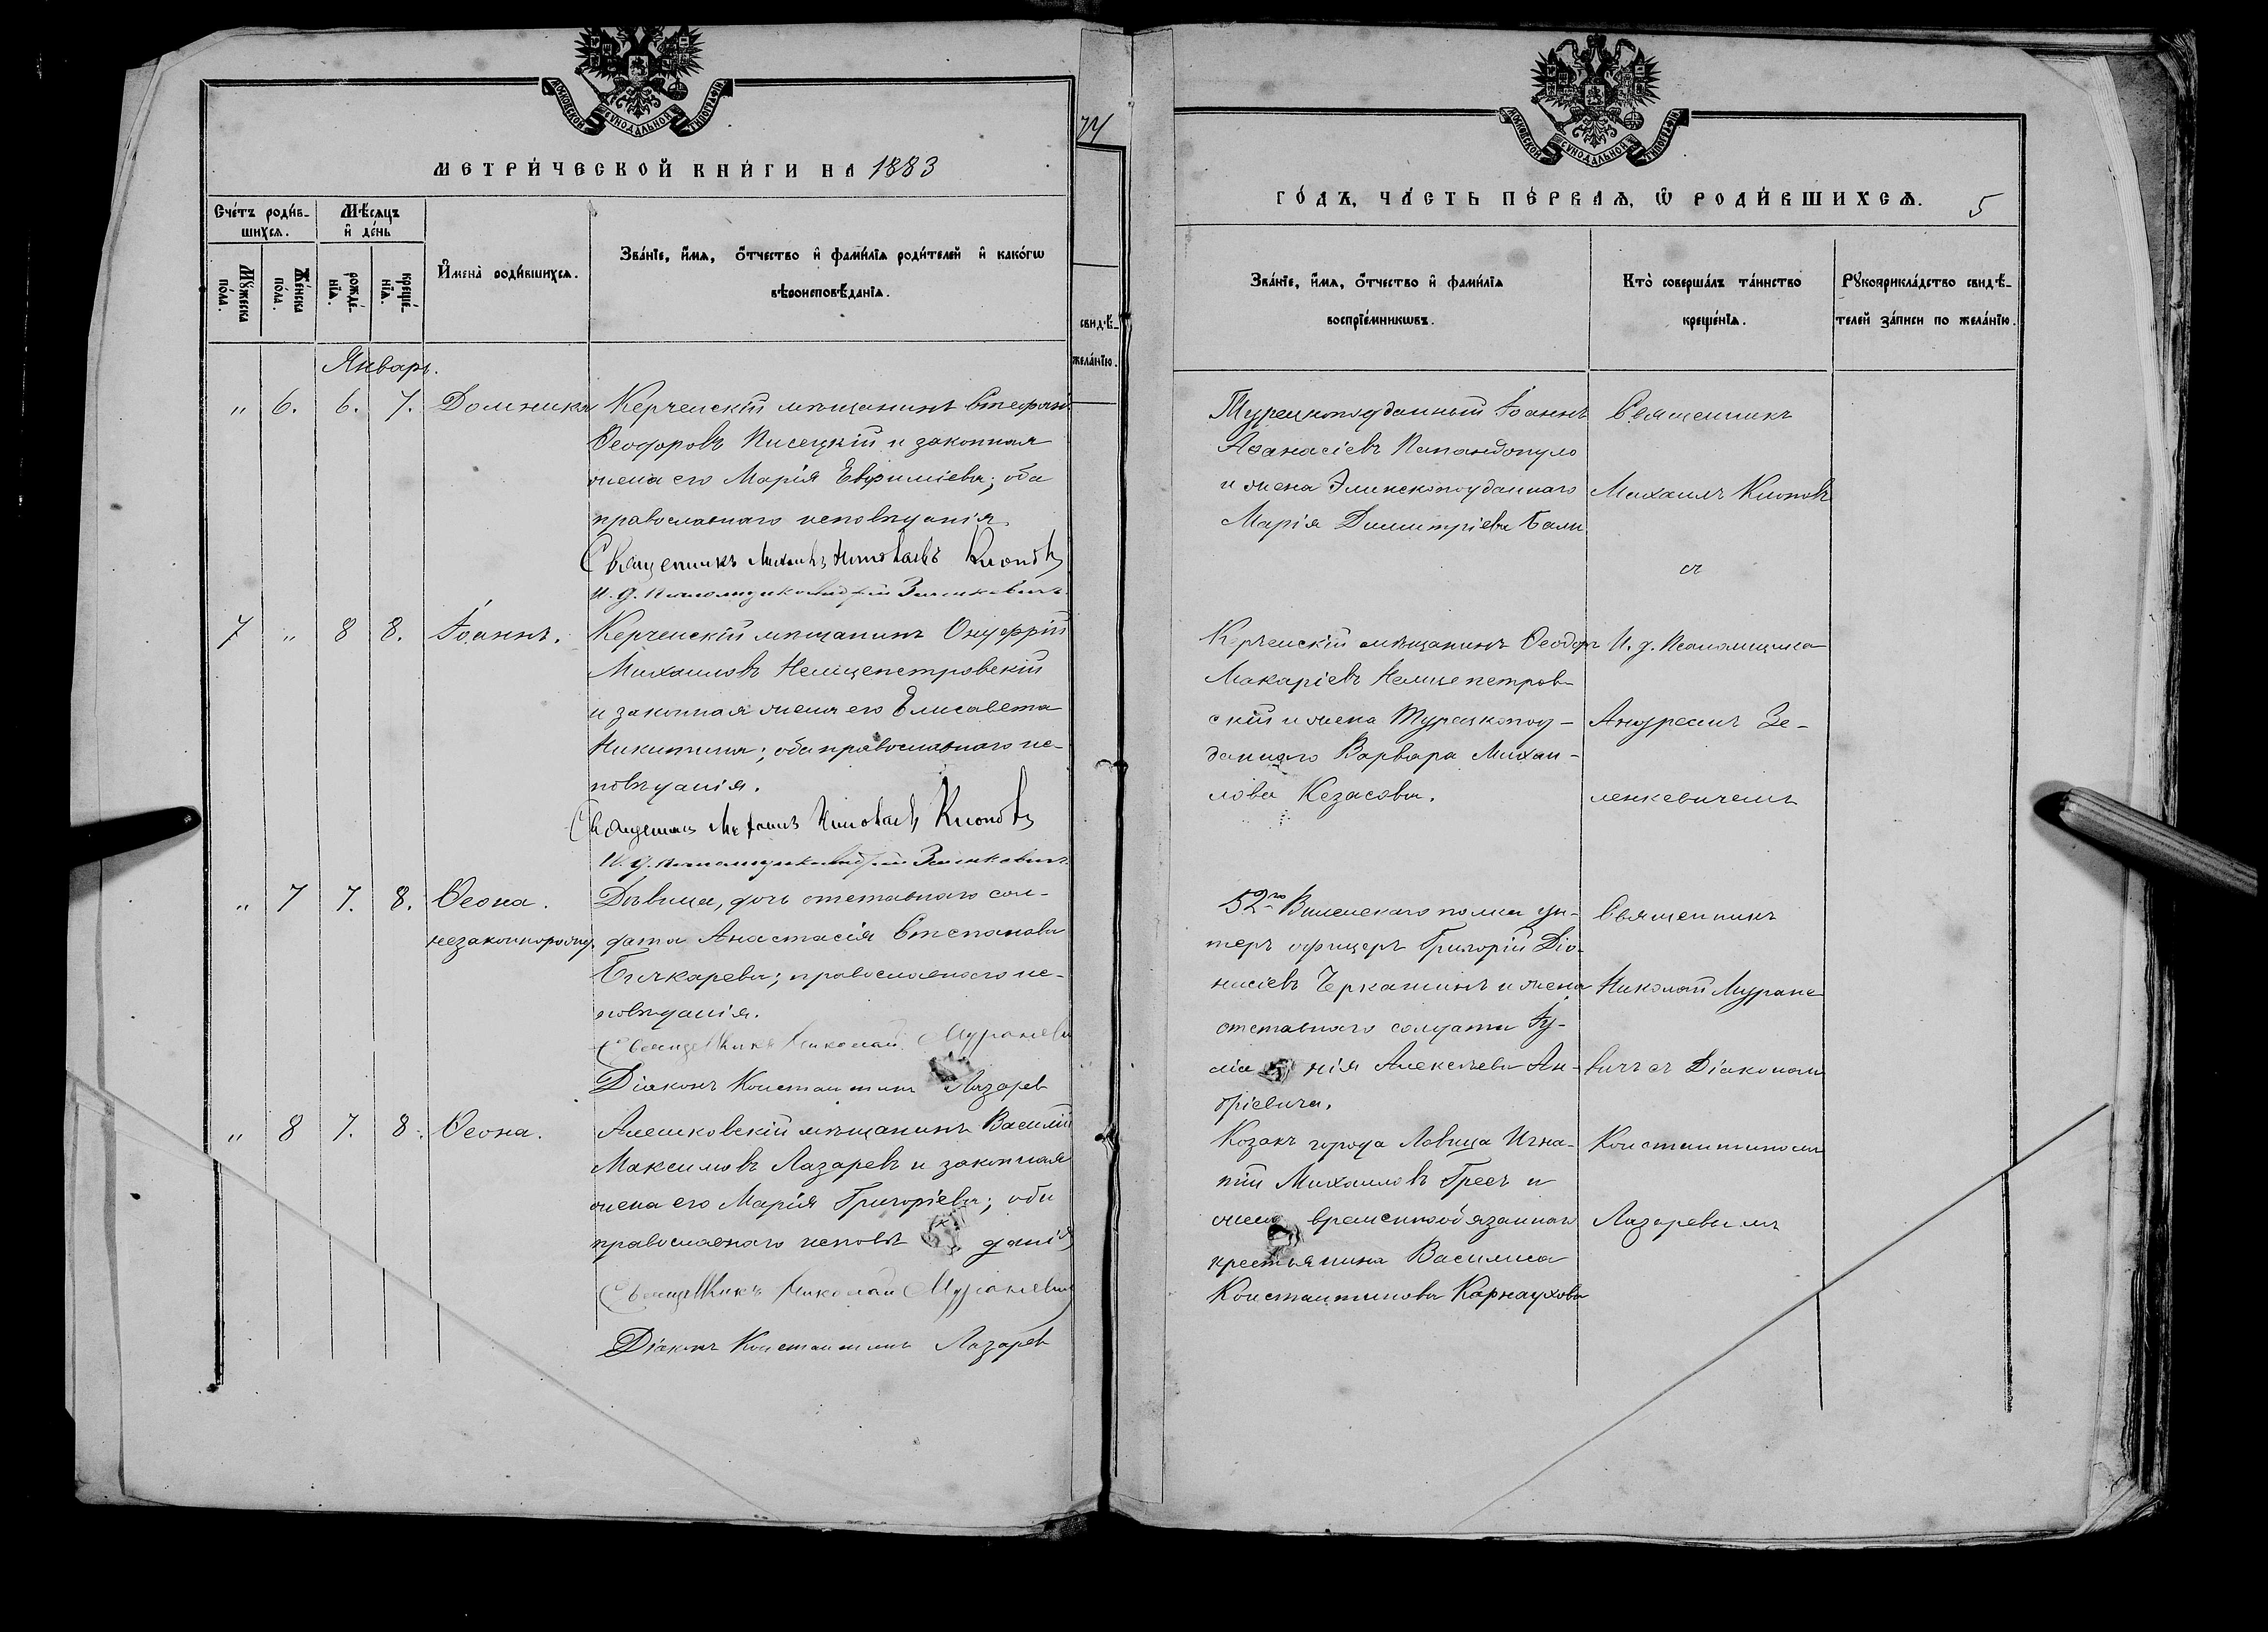 МОСКОВСКОЙ СѴНОДАЛЬНОЙ ТИПОГРАФІИ
МЕТРИ́ЧЕСКОЙ КНИ́ГИ НА 1883
Сче́тъ роди́в-
шихсѧ.
Мѣ́сѧцъ
и҆ де́нь
Мꙋ́жеска
по́ла.
Же́нска
по́ла.
рожде́-
нїѧ.
креще́-
нїѧ.
И҆мена̀ роди́вшихсѧ.
Зва́нїе, и҆́мѧ, ѻ҆́тчество и҆ фами́лїѧ роди́телей и҆ како́гѡ
вѣроисповѣ́данїѧ.
Январь.
" 6. 6. 7. Домникія
Керченскій мѣщанинъ Стефанъ
Ѳеодоровъ Писецкій и законная
жена его Марія Евфиміева; оба
православнаго исповѣданія.
Священникъ Михаилъ Николаевъ Клоповъ
И. д. псаломщика Андрей Зеленкевичъ
7 " 8 8. Іоаннъ.
Керченскій мѣщанинъ Онуфрій
Михаиловъ Немцепетровскій
и законная жена его Елисавета
Никитина; оба православнаго ис-
повѣданія.
Священникъ Михаилъ Николаевъ Клоповъ
И. д. псаломщика Андрей Зеленкевичъ
" 7 7. 8. Ѳеона.
незаконнорожд.
Дѣвица, дочь отставнаго сол-
дата Анастасія Степанова
Бочкарева; православнаго ис-
повѣданія.
Священникъ Николай Мураневичъ
Діаконъ Константинъ Лазарев
" 8 7. 8. Ѳеона.
Алешковскій мѣщанинъ Василій
Максимовъ Лазаревъ и законная
жена его Марія Григоріева; оба
православнаго исповѣ данія
Священникъ Николай Мураневичъ
Діаконъ Константинъ Лазарев
свидѣ́-
жела́нїю.
МОСКОВСКОЙ СѴНОДАЛЬНОЙ ТИПОГРАФІИ
ГО́ДЪ, ЧА́СТЬ ПЕ́РВАѦ, Ѡ҆ РОДИ́ВШИХСѦ.
5
Зва́нїе, и҆́мѧ, ѻ҆́тчество и҆ фами́лїѧ
воспрїе́мникѡвъ.
Кто̀ соверша́лъ та́инство
креще́нїѧ.
Рꙋкоприкла́дство свидѣ́-
телей за́писи по жела́нїю.
Турецкоподданный Іоаннъ
Аѳанасіевъ Папандопуло
и жена Элинскоподданнаго
Марія Димитріева Бали
Священникъ
Михаилъ Клоповъ
съ
Керченскій мѣщанинъ Ѳеодоръ
Макаріевъ Немцепетров-
скій и жена Турецкопод-
даннаго Варвара Михаи-
лова Кезасова.
И. д. Псаломщика
Андреемъ Зе-
ленкевичемъ
52го Виленскаго полка ун-
теръ офицеръ Григорій Діо-
нисіевъ Черкашинъ и жена
отставнаго солдата Іу-
ліа нія Алексѣева Ан-
дріевича.
Священникъ
Николай Муране
вичъ съ Діакономъ
Козакъ города Ловица Игна-
тій Михаиловъ Гресъ и
жена временнообязаннаго
крестьянина Василиса
Константинова Карнаухова
Константиномъ
Лазаревымъ